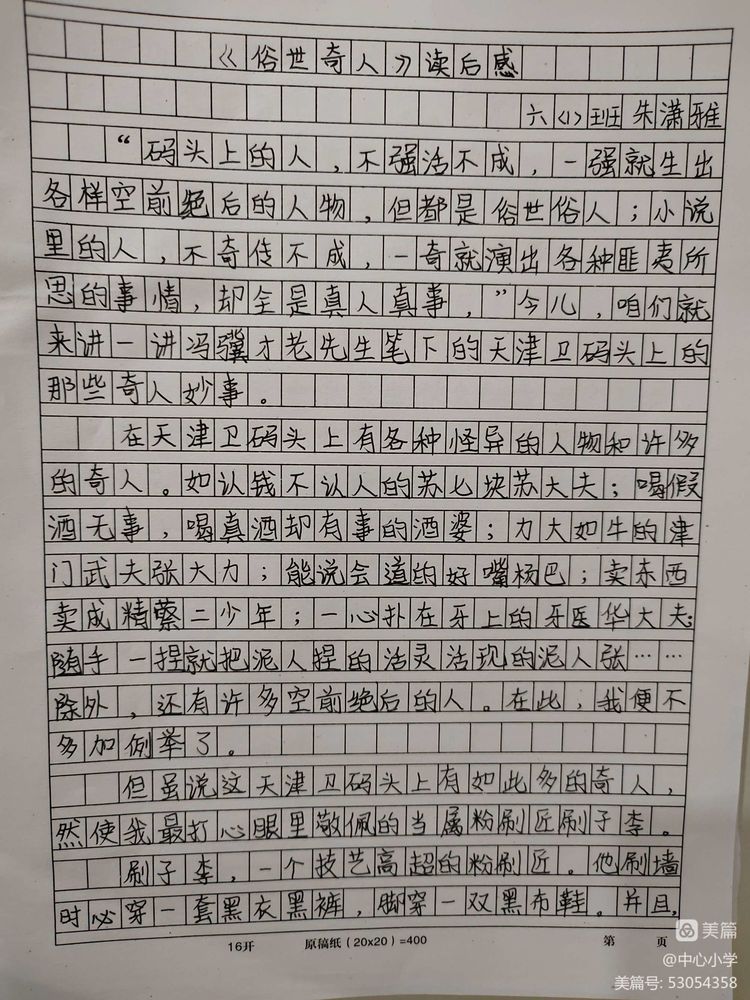 《俗世奇人》读后感
六(1)班 朱潇雅
“码头上的人，不强活不成，一强就生出
各样空前绝后的人物，但都是俗世俗人；小说
里的人，不奇传不成，一奇就演出各种匪夷所
思的事情，却全是真人真事，”今儿，咱们就
来讲一讲冯骥才老先生笔下的天津卫码头上的
那些奇人妙事。
在天津卫码头上有各种怪异的人物和许多
的奇人。如认钱不认人的苏七块苏大夫；喝假
酒无事，喝真酒却有事的酒婆；力大如牛的津
门武夫张大力；能说会道的好嘴杨巴；卖东西
卖成精蔡二少年；一心扑在牙上的牙医华大夫；
随手一捏就把泥人捏的活灵活现的泥人张……
除外，还有许多空前绝后的人。在此，我便不
多加例举了。
但虽说这天津卫码头上有如此多的奇人，
然使我最打心眼里敬佩的当属粉刷匠刷子李。
刷子李，一个技艺高超的粉刷匠。他刷墙
时必穿一套黑衣黑裤，脚穿一双黑布鞋。并且，
16开 原稿纸（20x20）=400 第 页
美篇
@中心小学
美篇号: 53054358